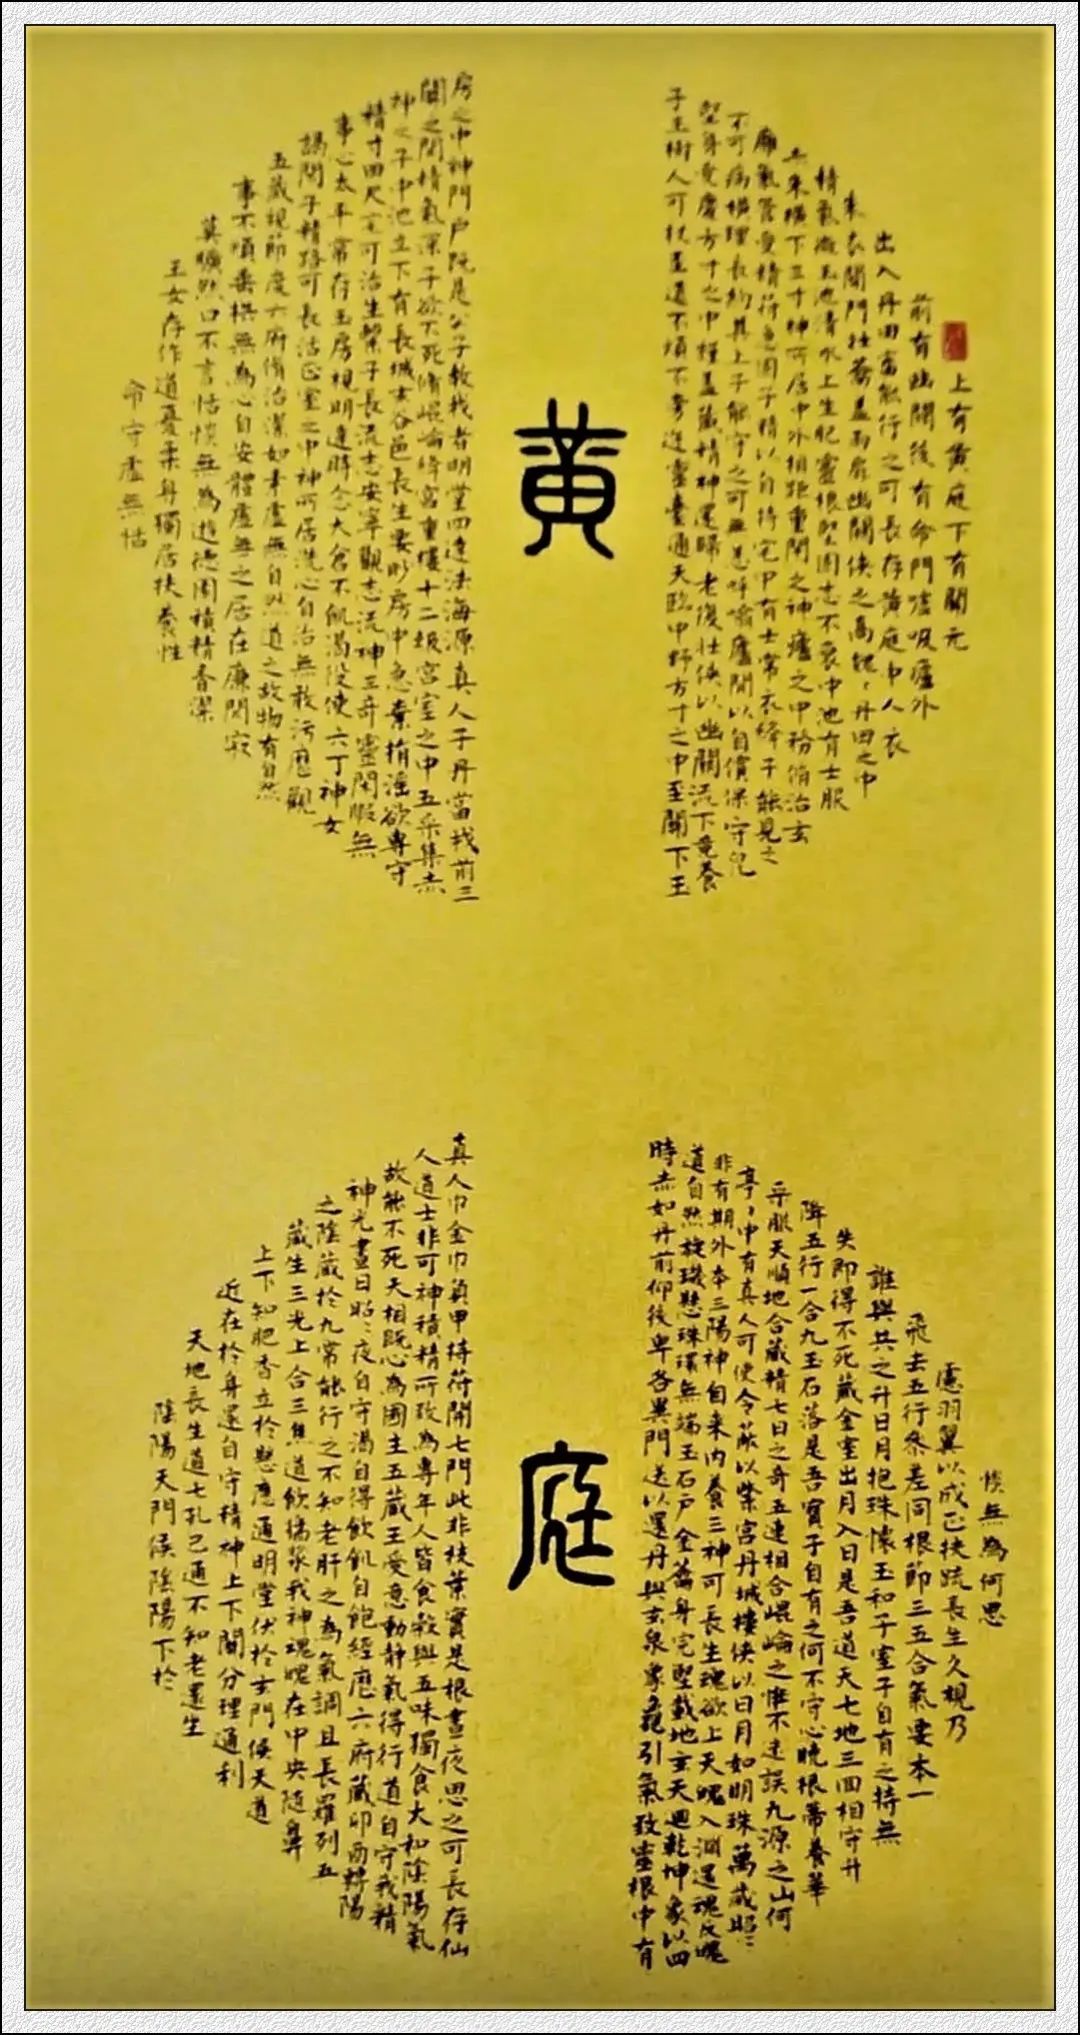 上有黃庭下有關元
前有幽關後有命門噓吸廬外
出入丹田審能行之可長存黃庭中人衣
朱衣關門壯蘥蓋兩扉幽關俠之高魏〻丹田之中
精氣微玉池清水上生肥靈根堅固志不衰中池有士服
赤朱橫下三寸神所居中外相距重閉之神廬之中務脩治玄
廱氣管受精符急固子精以自持宅中有士常衣絳子能見之
不可病橫理長約其上子能守之可無恙呼噏廬間以自償保守皃
堅身受慶方寸之中謹蓋藏精神還歸老復壯俠以幽關流下竟養
子玉樹人可杖至道不煩不旁迕靈臺通天臨中野方寸之中至關下玉
黃
房之中神門戶既是公子教我者明堂四達法海源真人子丹當我前三
關之間精氣深子欲不死脩崐崙絳宮重樓十二級宮室之中五采集赤
神之子中池立下有長城玄谷邑長生要眇房中急棄捐淫欲專守
精寸田尺宅可治生繫子長流志安寧觀志流神三奇靈閑暇無
事心太平常存玉房視明達時念大倉不飢渴役使六丁神女
謁閉子精路可長活正室之中神所居洗心自治無敢污歷觀
五藏視節度六府脩治潔如素虛無自然道之故物有自然
事不煩垂拱無為心自安體虛無之居在廉間寂
莫曠然口不言恬惔無為遊德園積精香潔
玉女存作道憂柔身獨居扶養性
命守虛無恬
惔無為何思
慮羽翼以成正扶疏長生久視乃
飛去五行參差同根節三五合氣要本一
誰與共之升日月抱珠懷玉和子室子自有之持無
失即得不死藏金室出月入日是吾道天七地三回相守升
降五行一合九玉石落是吾寶子自有之何不守心曉根蒂養華
采服天順地合藏精七日之奇五連相合崐崙之性不迷誤九源之山何
亭〻中有真人可使令蔽以紫宮丹城樓俠以日月如明珠萬歲昭〻
非有期外本三陽神自来內養三神可長生魂欲上天魄入淵還魂反魄
道自然旋璣懸珠環無端玉石戶金籥身完堅載地玄天迴乾坤象以四
時赤如丹前仰後卑各異門送以還丹與玄泉象龜引氣致靈根中有
庭
真人巾金巾負甲持符開七門此非枝葉實是根晝夜思之可長存仙
人道士非可神積精可致為專年人皆食穀與五味獨食大和陰陽氣
故能不死天相既心為國主五藏王受意動靜氣得行道自守我精
神光晝日昭〻夜自守渴自得飲飢自飽經歷六府藏卯酉轉陽
之陰藏於九常能行之不知老肝之為氣調且長羅列五
藏生三光上合三焦道飲揚漿我神魂魄在中央隨鼻
上下知肥香立於懸廱通明堂伏於玄門候天道
近在於身還自守精神上下開分理通利
天地長生道七孔已通不知老還坐
陰陽天門候陰陽下於